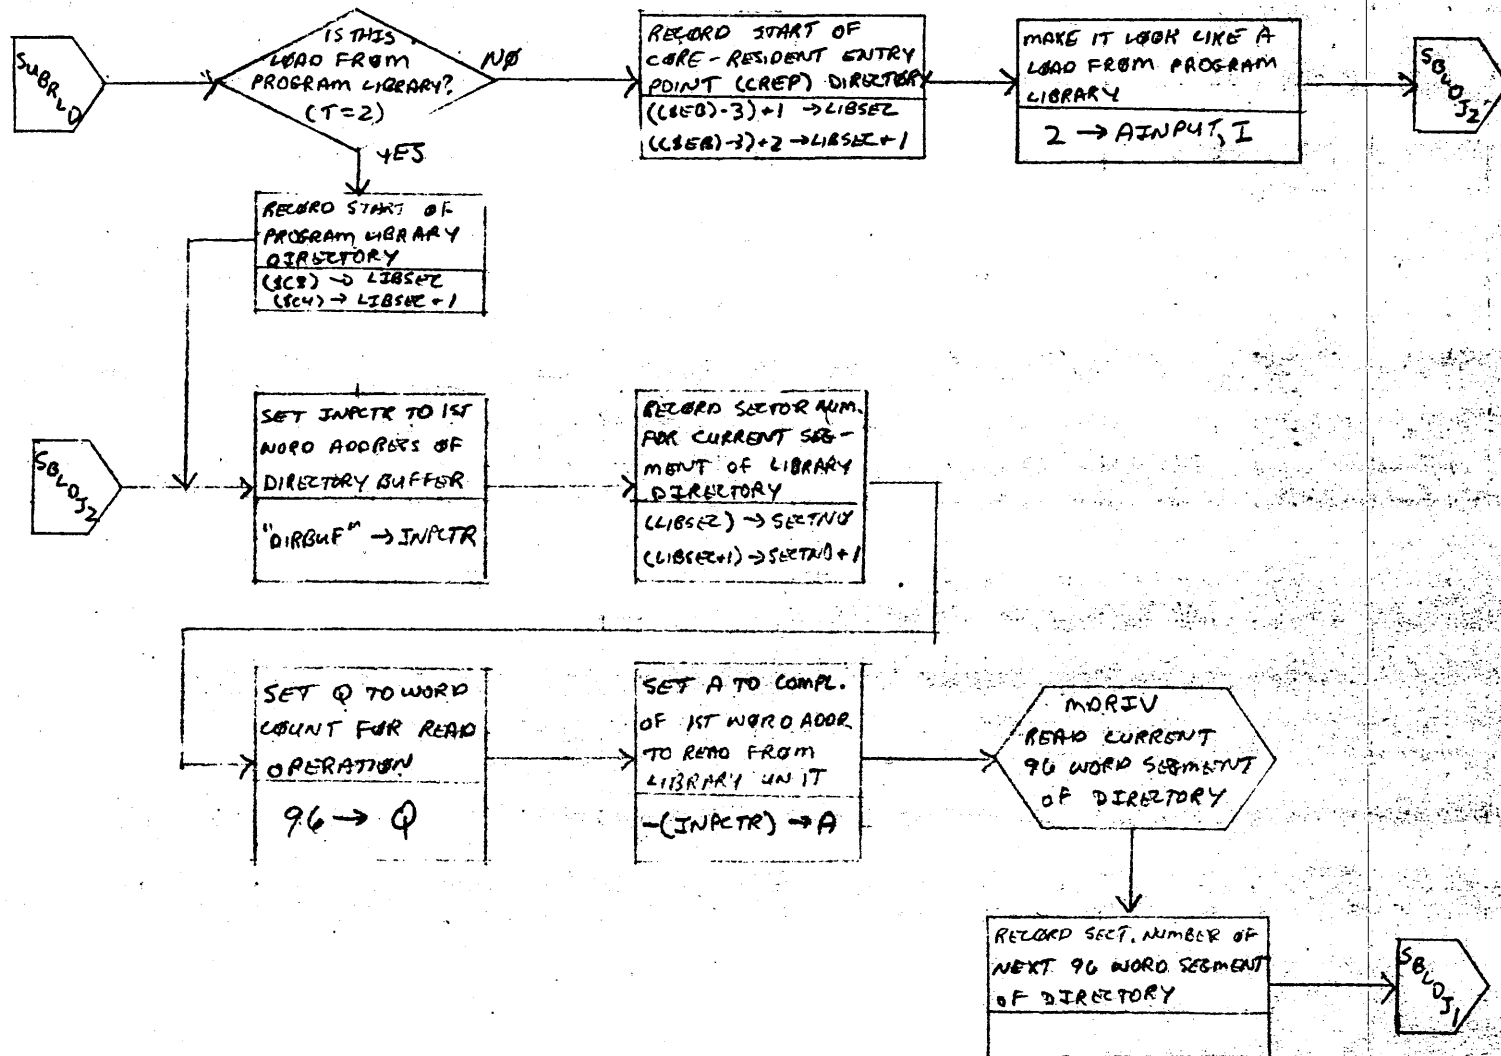 SUBRLD
IS THIS
LØAD FRØM
PRØGRAM LIBRARY?
(T=2)
NØ
YES
RECØRD START ØF
CØRE-RESIDENT ENTRY
PØINT (CREP) DIRECTØR
(($EB)-3)+1 → LIBSEC
(($EB)-3)+2 → LIBSEC+1
MAKE IT LØØK LIKE A
LØAD FRØM PRØGRAM
LIBRARY
2 → AINPUT, I
SBLDJ2
RECØRD START ØF
PRØGRAM LIBRARY
DIRECTØRY
($C3) → LIBSEC
($C4) → LIBSEC+1
SBLDJ2
SET INPCTR TO 1ST
WØRD ADDRESS ØF
DIRECTØRY BUFFER
"DIRBUF" → INPCTR
RECØRD SECTØR NUM.
FØR CURRENT SEG-
MENT ØF LIBRARY
DIRECTØRY
(LIBSEC) → SECTNØ
(LIBSEC+1) → SECTNØ+1
SET Q TO WØRD
CØUNT FØR READ
ØPERATIØN
96 → Q
SET A TO CØMPL.
ØF 1ST WØRD ADDR
TO READ FRØM
LIBRARY UNIT
-(INPCTR) → A
MDRIV
READ CURRENT
96 WØRD SEGMENT
ØF DIRECTØRY
RECØRD SECT. NUMBER ØF
NEXT 96 WØRD SEGMENT
ØF DIRECTØRY
SBLDJ1